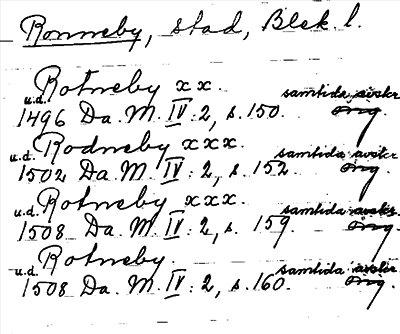 Ronneby, stad, Blek. l.
Rotneby xx.
u.d. samtida avskr.
1496 Da. M. IV: 2, s. 150. orig.
Rodneby xxx.
u.d. samtida avskr.
1502 Da. M. IV: 2, s. 152. orig.
Rotneby xxx.
u.d. samtida avskr.
1508 Da. M. IV: 2, s. 159. orig.
Rotneby.
u.d. samtida avskr.
1508 Da. M. IV: 2, s. 160. orig.